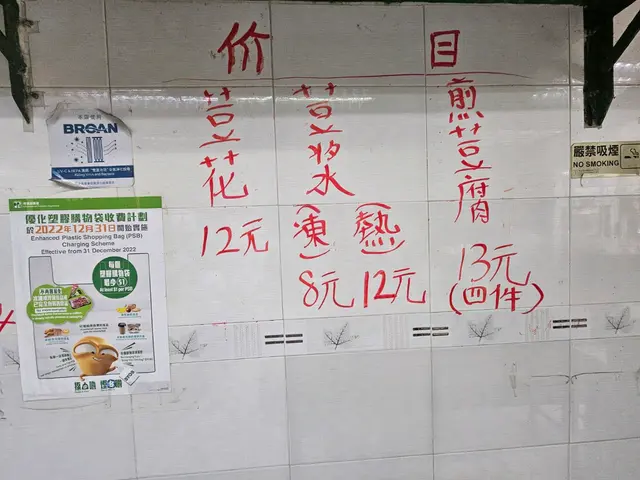 价目
荳花
12元
荳浆
(凍) (熱)
8元 12元
煎荳腐
13元
(四件)
BROAN
嚴禁吸煙
NO SMOKING
優化塑膠購物袋收費計劃
於2022年12月31日開始實施
Enhanced Plastic Shopping Bag (PSB)
Charging Scheme
Effective from 31 December 2022
每個
塑膠購物袋
最少$1
At least $1 per PSB